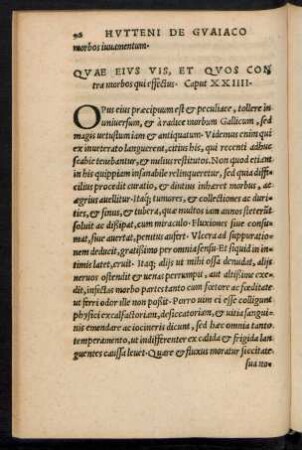 98 HVTTENI DE GVAIACO
morbos iuuamentum.
QVAE EIVS VIS, ET QVOS CON
tra morbos qui effectus. Caput XXIIII.
OPus eius præcipuum est & peculiare, tollere in
uniuersum, & à radice morbum Gallicum, sed
magis uetustum iam & antiquatum. Videmus enim qui
ex inueterato languerent, citius his, qui recenti adhuc
scabie tenebantur, & melius restitutos. Non quod etiam
in his quippiam insanabile relinqueretur, sed quia diffi-
cilius procedit curatio, & diutius inhæret morbus, at
ægrius auellitur. Itaq; tumores, & collectiones ac duri-
ties, & sinus, & tubera, quæ multos iam annos steterūt
soluit ac dissipat, cum miraculo. Fluxiones siue consu-
mat, siue auertat, penitus aufert. Vlcera ad suppuratio
nem deducit, gratissimo per omnia sensu. Et siquid in in-
timis latet, eruit. Itaq; alijs ut mihi ossa denudat, alijs
neruos ostendit & uenas perrumpi, aut altissime exe-
dit, infectas morbo partes tanto cum fœtore ac fœditate
ut ferri odor ille non possit. Porro uim ei esse colligunt
physici excalfactoriam, desiccatoriam, & uitia sangui-
nis emendare ac iocineris dicunt, sed hæc omnia tanto
temperamento, ut indifferenter ex calida & frigida lan
guentes caussa leuet. Quare & fluxus moratur siccitate
sua no-